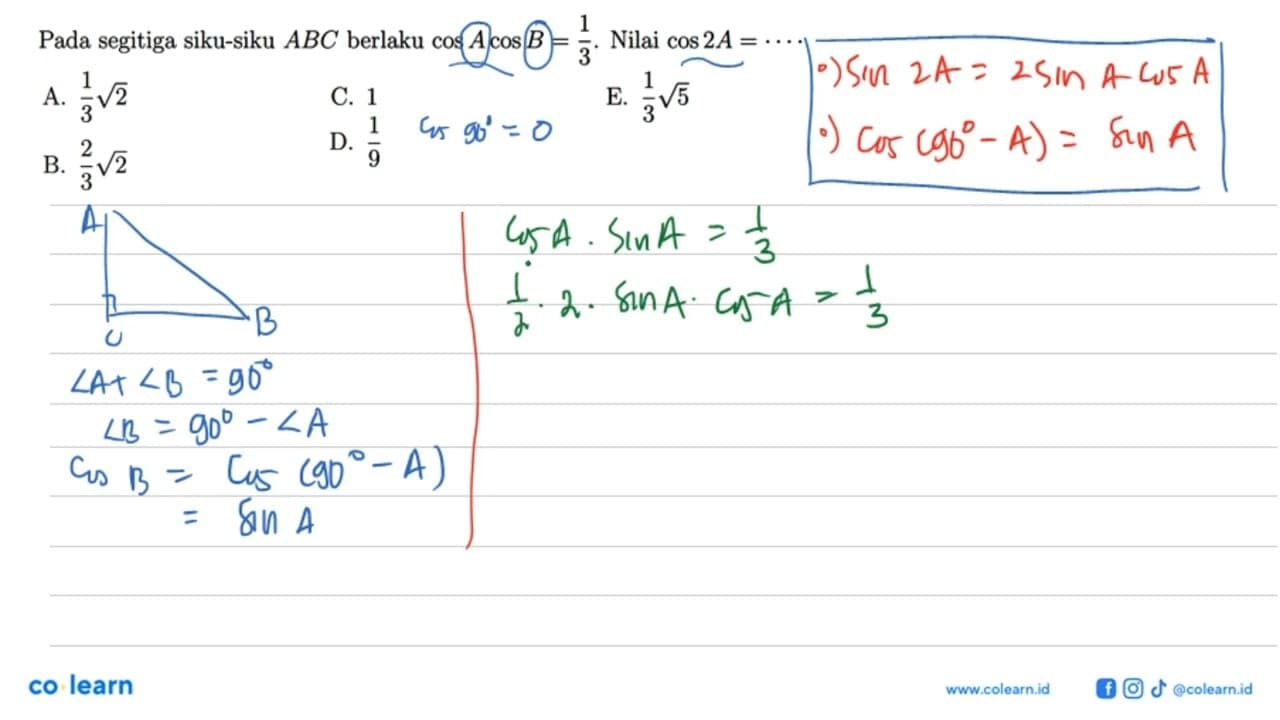 Pada segitiga siku-siku ABC berlaku cos A cos B = 1/3. Nilai cos 2A = ....
A. 1/3 √2
C. 1
E. 1/3 √5
B. 2/3 √2
D. 1/9
Cos 90° = 0
•) Sin 2A = 2 Sin A Cos A
•) Cos (90° - A) = Sin A
A
B
C
∠A + ∠B = 90°
∠B = 90° - ∠A
Cos B = Cos (90° - A)
= Sin A
Cos A . Sin A = 1/3
1/2 . 2 . Sin A . Cos A = 1/3
co learn
www.colearn.id
@colearn.id